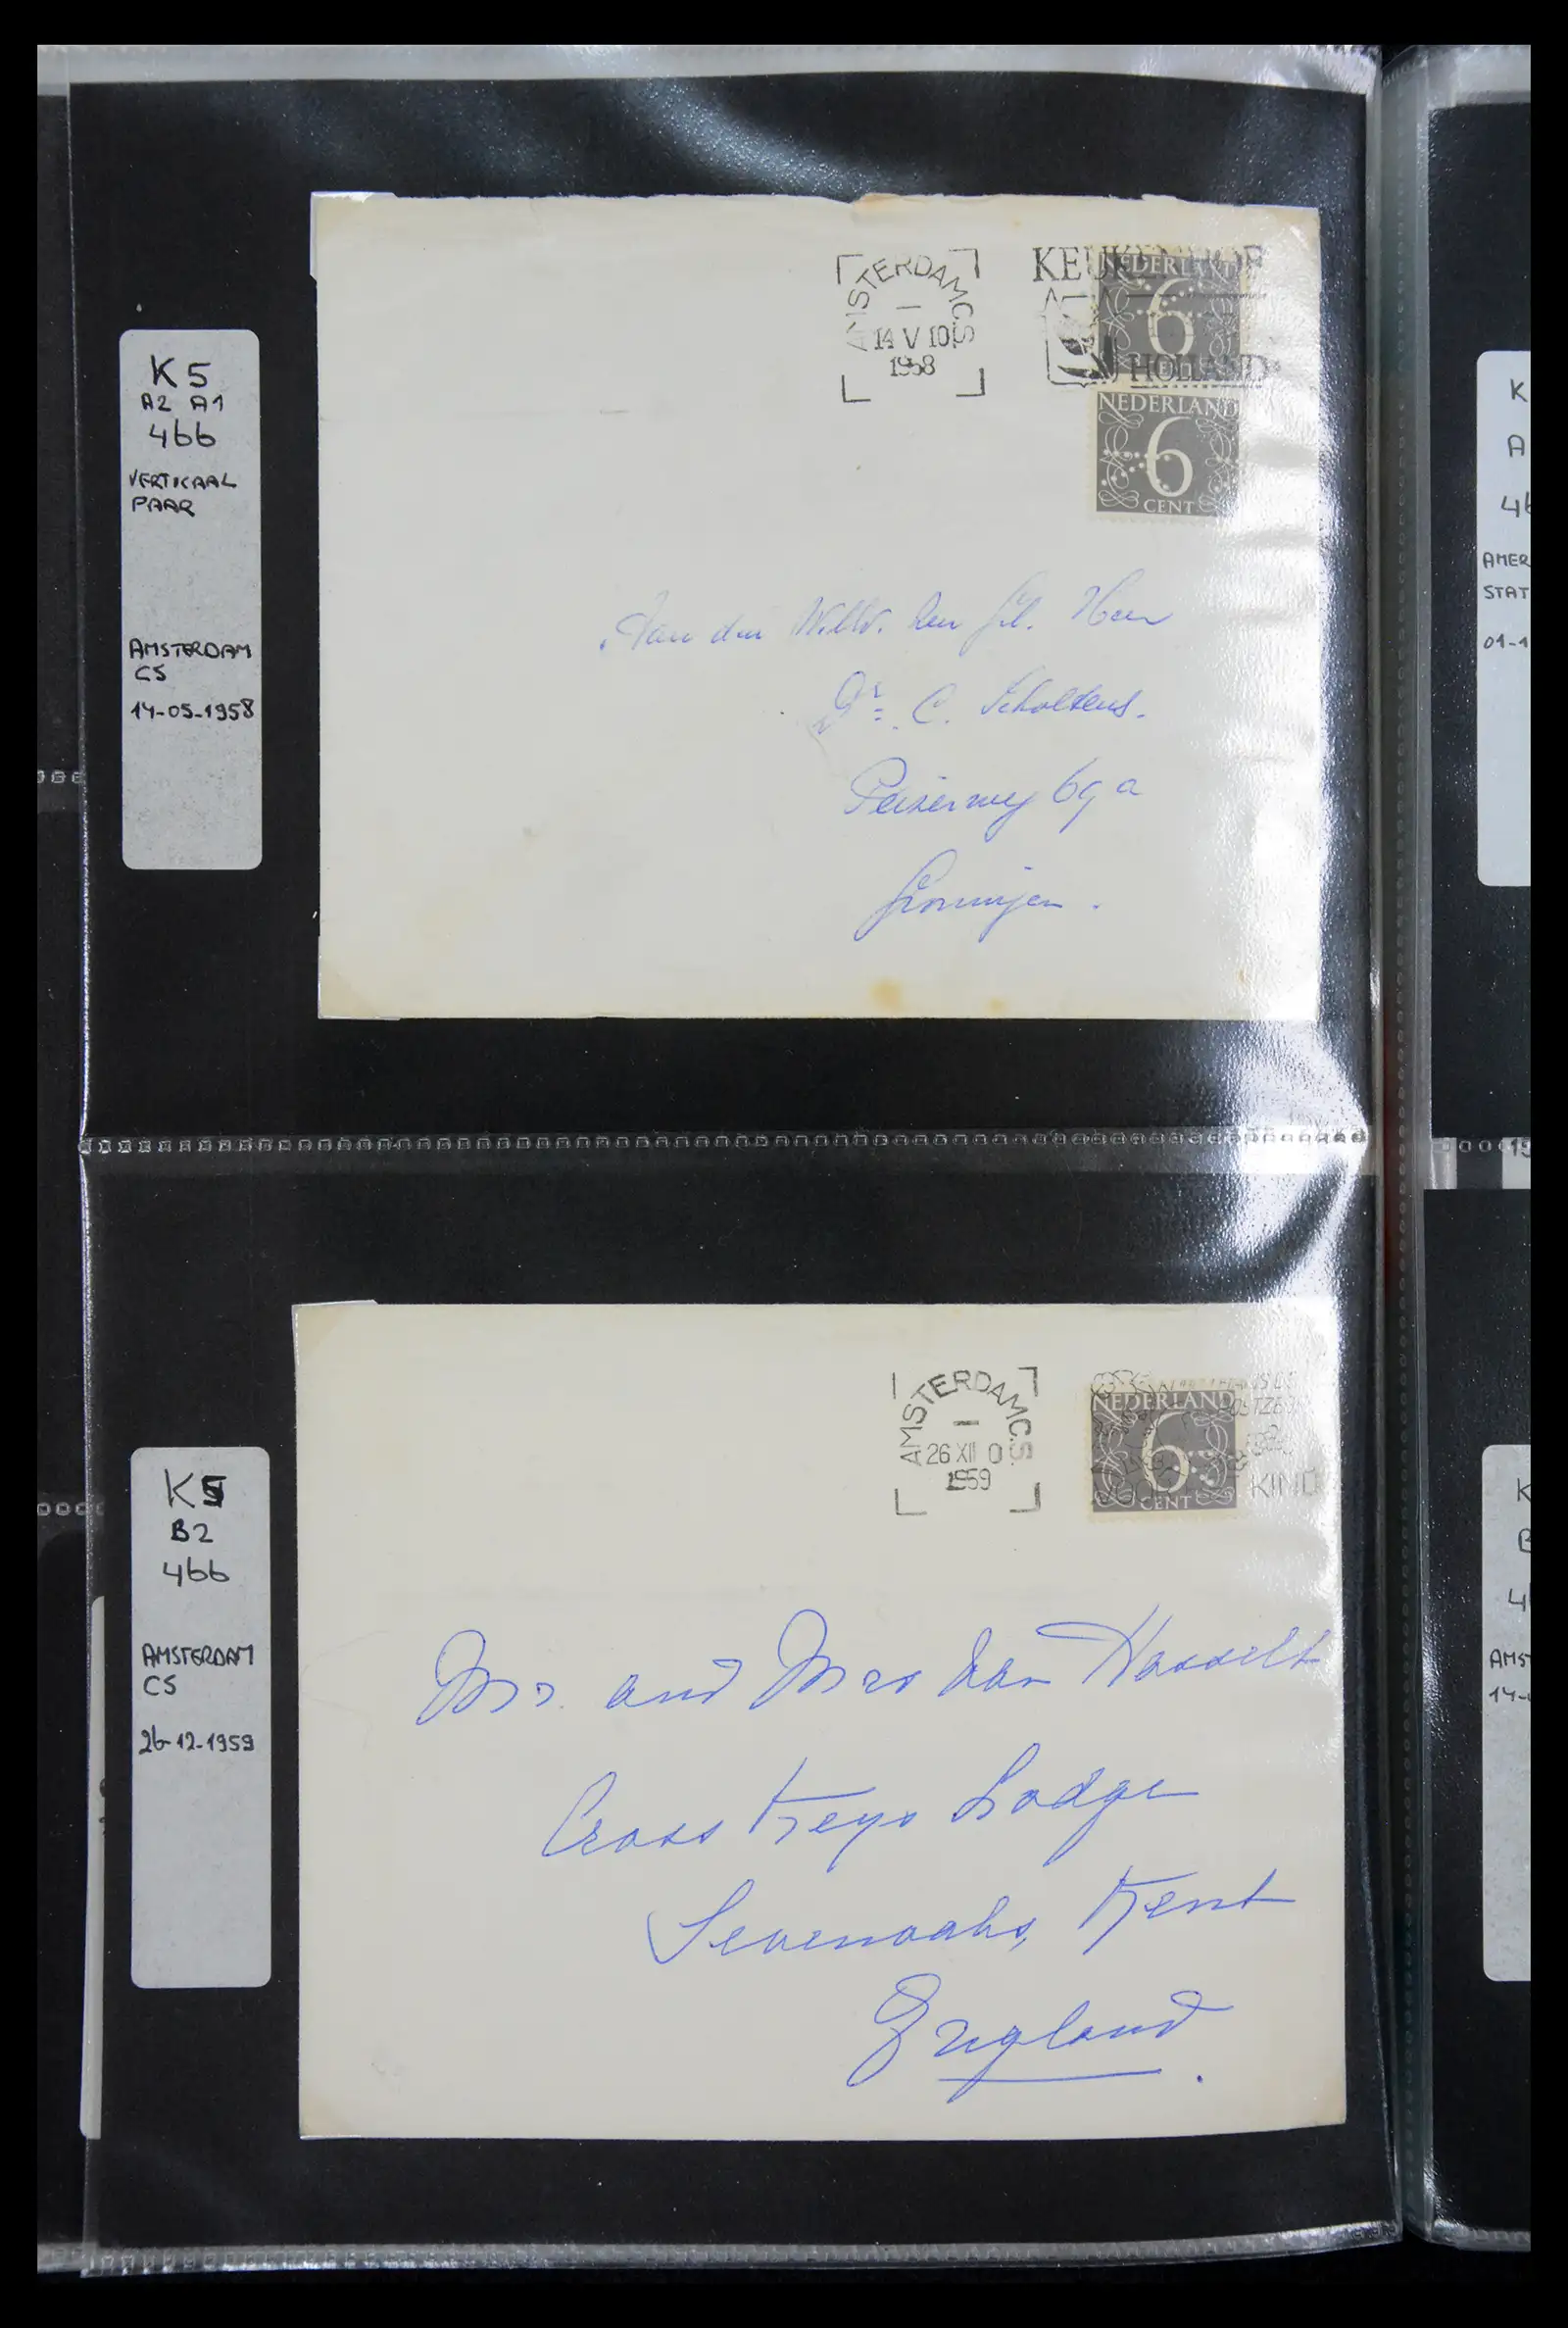 K5
A2 A1
466
VERTICAAL
PAAR
AMSTERDAM
CS
14-05-1958
AMSTERDAM C.S
14 V 10
1958
KEUKENHOF
HOLLAND
NEDERLAND
6
NEDERLAND
6
CENT
Aan den
Heer
Dr. C. Scholtens.
Peizerweg 69a
Groningen.
K5
B2
466
AMSTERDAM
CS
26-12-1959
AMSTERDAM C.S
26 XII 0
1959
NEDERLAND
6
CENT
KIND
Mr. and Mrs van Hasselt
Cross Keys Lodge
Sevenoaks, Kent
England.
K
A
46
AMER
STAT
01-1
K
B
4
AMS
14-